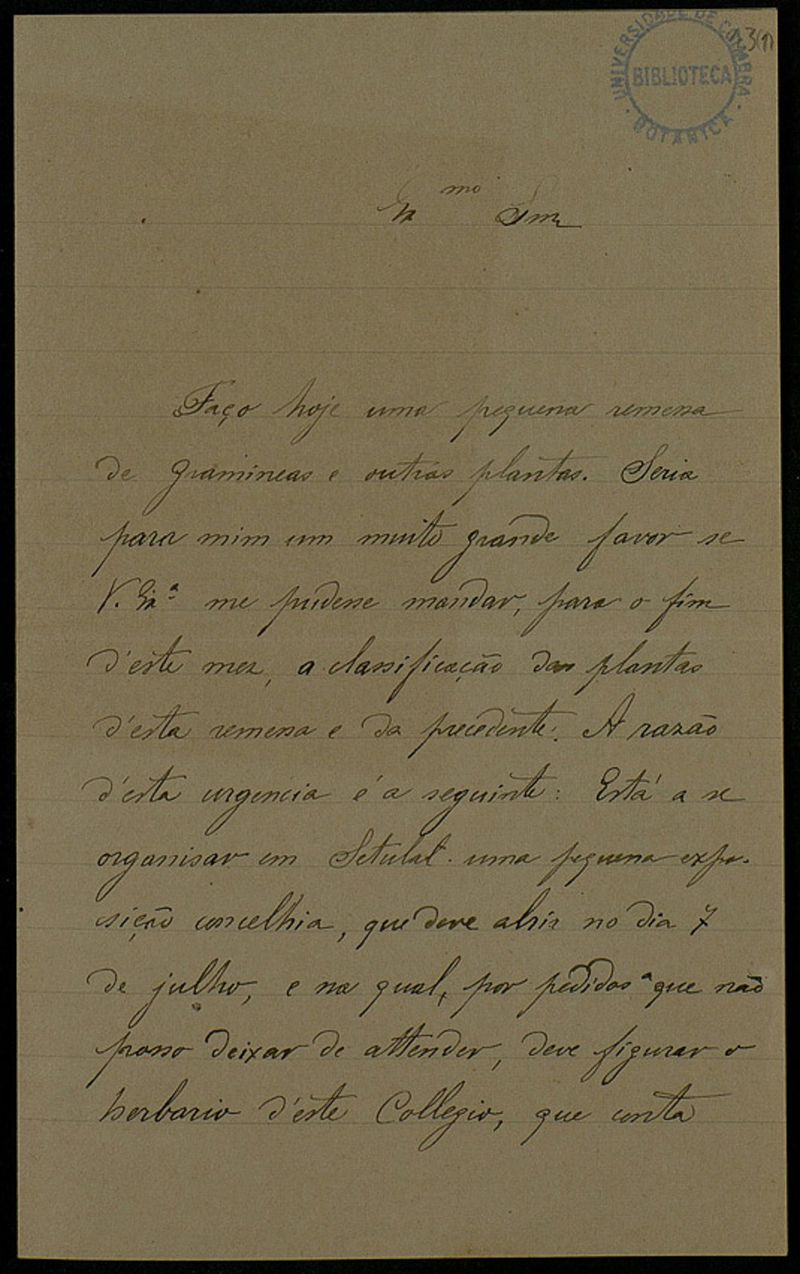 UNIVERSIDADE DE COIMBRA
BIBLIOTECA
BOTANICA
Ex.mo Snr
Faço hoje uma pequena remessa
de gramineas e outras plantas. Seria
para mim um muito grande favor se
V. Ex.ª me pudesse mandar, para o fim
d'este mez, a classificação das plantas
d'esta remessa e da precedente. A razão
d'esta urgencia é a seguinte: Está a se
organisar em Setubal uma pequena expo-
sição concelhia, que deve abrir no dia 7
de julho, e na qual, por pedidos a que não
posso deixar de attender, deve figurar o
herbario d'este Collegio, que conta